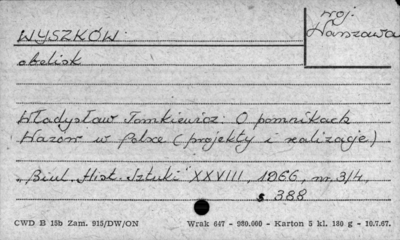 WYSZKÓW
woj.
Warszawa
obelisk
Władysław Tomkiewicz: O pomnikach
Wazów w Polsce (projekty i realizacje)
„Biul. Hist. Sztuki" XXVIII, 1966, nr 3/4,
s. 388
CWD B 15b Zam. 915/DW/ON Wrak 647 - 980.000 - Karton 5 kl. 180 g - 10.7.67.